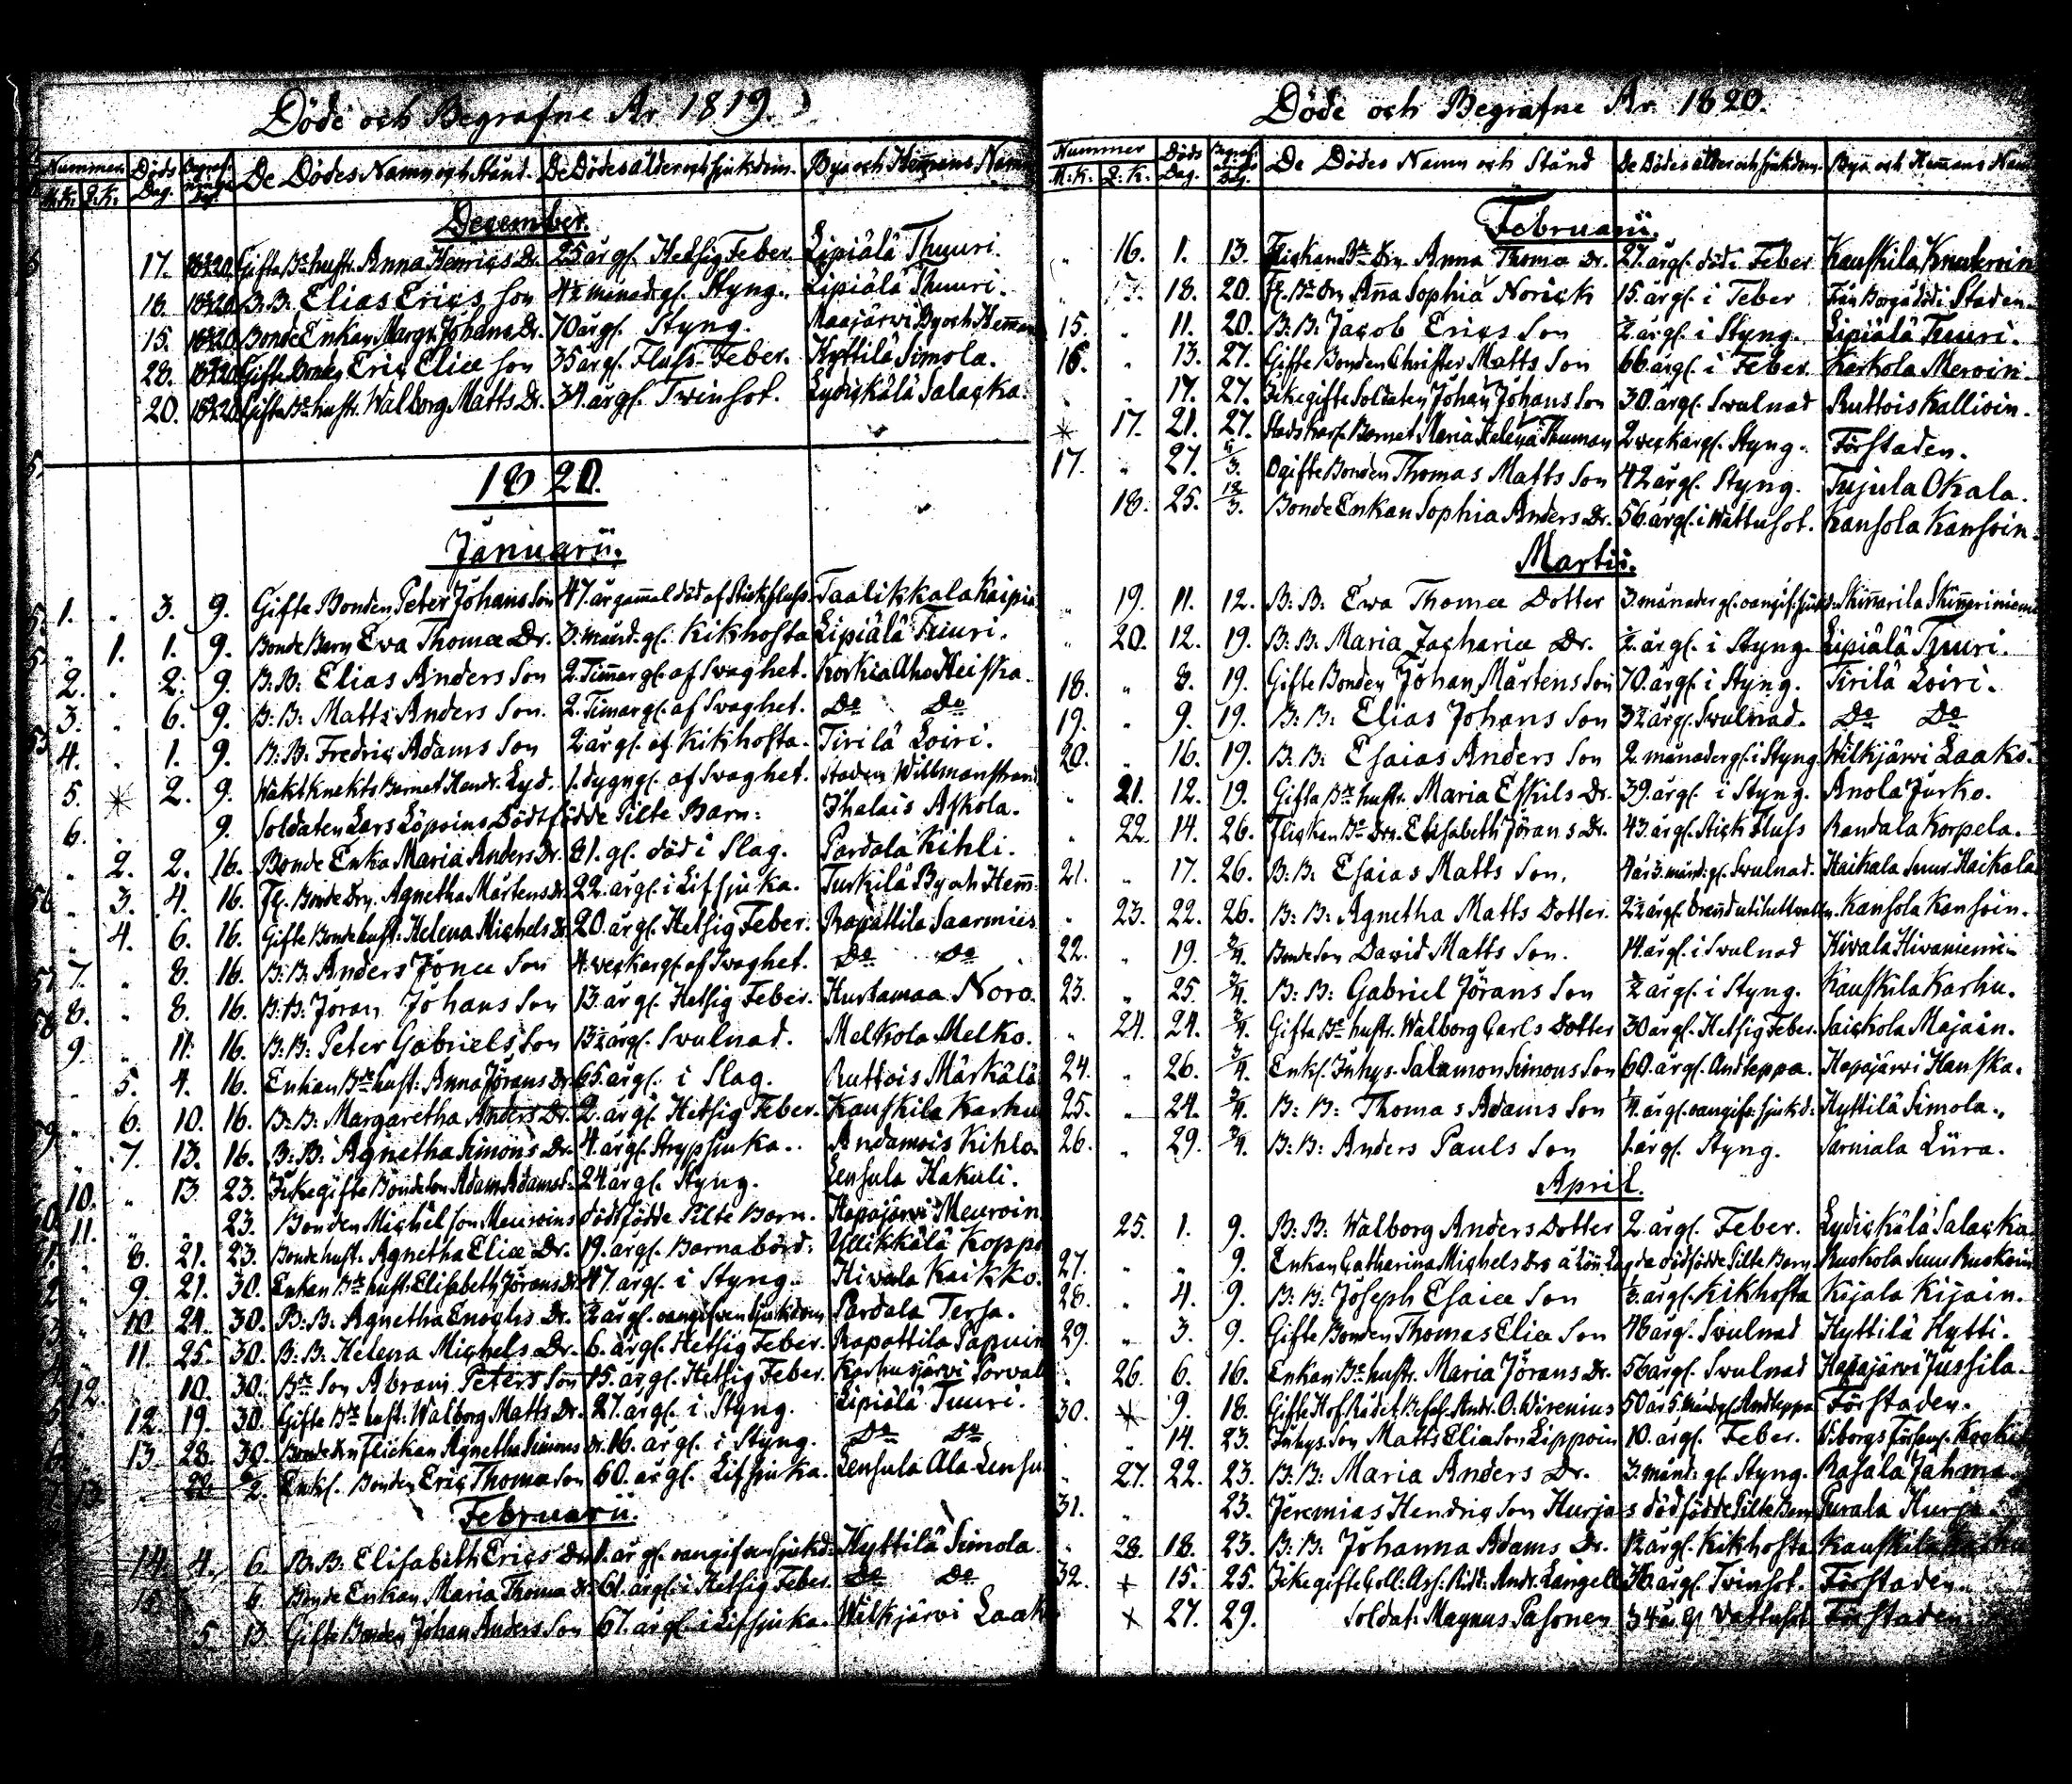 Döde och Begrafne År 1819.
Nummer Döds Dag. Begrafnings Dag. De Dödes Namn och Stånd. De Dödes ålder och sjukdom. Bya och Hemmans Namn
M.K. Q.K.
December.
17. Gifta Bde hustr. Anna Henrics Dr. 25 år gl. Hetsig Feber. Lipiälä Thuuri.
18. B:B: Elias Erics Son 4½ månad gl. Styng. Lipiälä Thuuri.
15. Bonde Enkan Margr. Johans Dr. 70 år gl. Styng. Maajärvi By och Hemman
28. Gifte Bonden Eric Eliæ Son 35 år gl. Fluss Feber. Hyttilä Simola.
20. Gifta Bde hustr. Walborg Matts Dr. 34. år gl. Twinsot. Lydickälä Salacka.
1820.
Januarii.
1. „ 3. 9. Gifte Bonden Peter Johans Son 47. år gammal död af Stickfluss. Taalikkala Kaipia
„ 1. 1. 9. Bonde Barn Ewa Thomæ Dr. 3. månd. gl. Kikhosta Lipiälä Tuuri.
2. „ 2. 9. B:B: Elias Anders Son 2. Timar gl. af Svaghet. Korkia Aho Heiska.
3. „ 6. 9. B:B: Matts Anders Son. 2. Timar gl. af Svaghet. Do Do
4. „ 1. 9. B:B: Fredric Adams Son 2 år gl. af Kikhosta. Tirilä Loiri.
5. * 2. 9. Waktknekts Barnet Hendr. Lyd. 1. dygn gl. af Svaghet. Staden Willmanstrand
6. „ 9. Soldaten Lars Löpoins Dödfödde Pilte Barn: Ihalais Askola.
„ 2. 2. 16. Bonde Enka Maria Anders Dr. 81. gl. död i Slag. Pardala Kihli.
„ 3. 4. 16. Fl. Bonde Drn. Agnetha Mårtens Dr. 22. år gl. i Lifsjuka. Turkilä By och Hem:
„ 4. 6. 16. Gifte Bonde hust: Helena Michels Dr. 20. år gl. Hetsig Feber. Rapattila Saarmies
7. „ 8. 16. B:B: Anders Jonæ Son 4. weckar gl. af Svaghet. Do Do
8. „ 8. 16. B:B: Jöran Johans Son 13. år gl. Hetsig Feber. Hurtamaa Noro.
9. „ 11. 16. B:B: Peter Gabriels Son 13½ år gl. Svulnad. Melkola Melko.
„ 5. 4. 16. Enkan Bde hust: Anna Jörans Dr. 65. år gl. i Slag. Ruttois Märkälä
„ 6. 10. 16. B:B: Margaretha Anders Dr. 2. år gl. Hetsig Feber. Kauskila Karhu
„ 7. 13. 16. B:B: Agnetha Simons Dr. 4. år gl. Strypsjuka. Andamois Kihlo.
10. „ 13. 23. Icke gifte Bonde Son Adam Adamss: 24 år gl. Styng. Lensula Hakuli.
11. „ „ 23. Bonden Michel Son Meuroins dödfödde Pilte Barn. Hapajärvi Meuroin
8. 21. 23. Bonde hust. Agnetha Eliæ Dr. 19. år gl. Barnabörd: Yllikkälä Koppo
„ 9. 21. 30. Enkan Bde hust: Elisabeth Jörans Dr. 47. år gl. i Styng. Hivala Kaikko.
„ 10. 24. 30. B:B: Agnetha Enochs Dr. ½ år gl. oangifven sjukdom Pardala Tersa.
„ 11. 25. 30. B:B: Helena Michels Dr. 6. år gl. Hetsig Feber. Rapattila Papuin
12. „ 10. 30. Bde Son Abram Peters Son 15. år gl. Hetsig Feber. Karhusjärvi Porvali
„ 12. 19. 30. Gifta Bde hust: Walborg Matts Dr. 27. år gl. i Styng. Lipiälä Tuuri.
„ 13. 28. 30. Bonde Drn Flickan Agnetha Simons Dr. 16. år gl. i Styng. Do Do
13. „ 22. 6/2. Enkl. Bonden Eric Thomæ Son 60. år gl. Lifsjuka. Lensula Ala Lensu
Februarii.
14. 4. 6. B:B: Elisabeth Erics Dr. 1. år gl. oangifven sjukd: Hyttilä Simola.
15. 6. Bonde Enkan Maria Thomæ Dr. 61. år gl. i Hetsig Feber. Do Do
5. 13. Gifte Bonden Johan Anders Son 67. år gl. i Lifsjuka. Wilkjärvi Laak
Döde och Begrafne År. 1820.
Nummer Döds Dag. Begrafnings Dag. De Dödes Namn och Stånd De Dödes ålder och sjukdom. Bya och Hemmans Namn
M.K. Q.K.
Februarii.
„ 16. 1. 13. Flickan Bde Drn Anna Thomæ Dr. 27. år gl. död i Feber Kauskila
„ 17. 18. 20. Fl. Bde Drn Anna Sophia Norick 15. år gl. i Feber Från Borgå död i Staden.
15. „ 11. 20. B:B: Jacob Erics Son ½ år gl. i Styng. Lipiälä Tuuri.
16. „ 13. 27. Gifte Bonden Christer Matts Son 66. år gl. i Feber. Karkola Meroin.
„ 17. 27. Icke gifte Soldaten Johan Johans Son 30. år gl. Svulnad Ruttois Kallioin.
* 17. 21. 27. Barnet Maria Helena Thuman 2 weckar gl. Styng. Förstaden.
17. „ 27. 5/3. Ogifte Bonden Thomas Matts Son 42 år gl. Styng. Tujula Okala.
18. 25. 12/3. Bonde Enkan Sophia Anders Dr. 56. år gl. i Wattusot. Kansola Kansoin.
Martii.
„ 19. 11. 12. B:B: Ewa Thomæ Dotter 3. månader gl. oangif: sjukd: Skinnarila Skinnariniemi
„ 20. 12. 19. B:B: Maria Zachariæ Dr. ½ år gl. i Styng. Lipiälä Tuuri.
18. „ 8. 19. Gifte Bonden Johan Mårtens Son 70. år gl. i Styng. Tirilä Loiri.
19. „ 9. 19. B:B: Elias Johans Son 3½ år gl. Svulnad. Do Do
20. „ 16. 19. B:B: Esaias Anders Son 2. månader gl. i Styng Wilkjärvi Laako.
„ 21. 12. 19. Gifta Bde hustr. Maria Eskils Dr. 39. år gl. i Styng. Anola Jurko.
„ 22. 14. 26. Flickan Bde Drn. Elisabeth Jörans Dr. 43. år gl. Stick Fluss Randala Korpela.
21. „ 17. 26. B:B: Esaias Matts Son. 4 år 3. månd: gl. Svulnad. Haikala Suur Haikala
„ 23. 22. 26. B:B: Agnetha Matts Dotter. 2½ år gl. bränd uti hett vattn. Kansola Kansoin.
22. „ 19. 3/4. Bonde Son David Matts Son. 14. år gl. i Svulnad Hivala Hivaniemi
23. „ 25. 3/4. B:B: Gabriel Jörans Son ½ år gl. i Styng. Kauskila Karhu.
„ 24. 24. 3/4. Gifta Bde hustr. Walborg Carls Dotter 30 år gl. Hetsig Feber. Saickola Majain.
24. „ 26. 3/4. Enkl. Inhys. Salamon Simons Son 60. år gl. Andteppa. Hapajärvi Hanska.
25. „ 24. 3/4. B:B: Thomas Adams Son ¼. år gl. oangifv: sjukd: Hyttilä Simola.
26. „ 29. 3/4. B:B: Anders Pauls Son 1. år gl. Styng. Sarviala Liira.
April.
25. 1. 9. B:B: Walborg Anders Dotter 2. år gl. Feber. Lydickälä Salacka
27. „ „ 9. Enkan Catharina Michels Drs å lönn: lagda dödfödde Pilte Barn. Ruskola Suur Ruskoin
28. „ 4. 9. B:B: Joseph Esaiæ Son ½. år gl. Kikhosta Kijala Kijain.
29. „ 3. 9. Gifte Bonden Thomas Eliæ Son 48 år gl. Svulnad Hyttilä Hytti.
„ 26. 6. 16. Enkan Bde hustr. Maria Jörans Dr. 56 år gl. Svulnad Hapajärvi Jussila.
30. * 9. 18. Gifte Hof Rådet Andr. O. Wirenius 50 år 5. månd gl. Andteppa Förstaden.
„ 14. 23. Inhys. Son Matts Eliæ Son Lippoin 10. år gl. Feber. Wiborgs
„ 27. 22. 23. B:B: Maria Anders Dr. 3. månd: gl. Styng. Rasala Jahma
31. „ 23. Jeremias Hendric Son Hurjas dödfödde Pilte Barn Purala Hurja
„ 28. 18. 23. B:B: Johanna Adams Dr. 1½ år gl. Kikhosta Kauskila Karhu
32. + 15. 25. Icke gifte Coll: Ass: Ridd: Andr. Langell 36. år gl. Tvinsot. Förstaden.
× 27. 29. Soldat: Magnus Pasonen 34 år gl Wattusot Förstaden